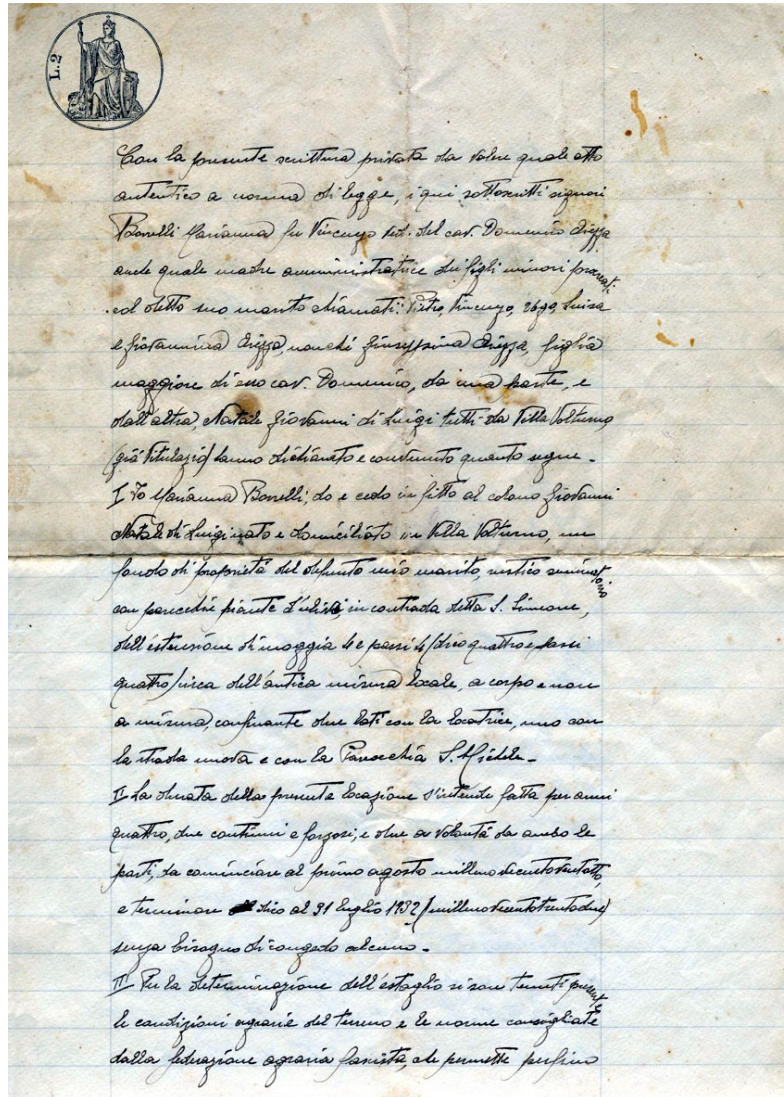 L. 2
Con la presente scrittura privata da valere quale atto
autentico a norma di legge, i qui sottoscritti signori
Bonelli Marianna fu Vincenzo ved. del cav. Domenico
anche quale madre amministratrice dei figli minori procreati
col detto suo marito chiamati: Pietro, Vincenzo, Luisa
e Giovannina nonché Giuseppina figlia
maggiore di esso cav. Domenico, da una parte, e
dall'altra Natale Giovanni di Luigi tutti da Villa Volturno
(già Vitulazio) hanno dichiarato e convenuto quanto segue -
I Io Marianna Bonelli, do e cedo in fitto al colono Giovanni
Natale di Luigi nato e domiciliato in Villa Volturno, un
fondo di proprietà del defunto mio marito, rustico seminatorio
con parecchie piante d'ulivi, in contrada detta S. Simone,
dell'estensione di moggia 4 e passi 4 (dico quattro e passi
quattro) circa dell'antica misura locale, a corpo e non
a misura, confinante due lati con la locatrice, uno con
la strada nuova e con la Parrocchia S. Michele -
II La durata della presente locazione s'intende fatta per anni
quattro, due continui e forzosi, e due a volontà da ambo le
parti, da cominciare al primo agosto millenovecentoventotto,
e terminare dico al 31 luglio 1932 (millenovecentotrentadue)
senza bisogno di congedo alcuno -
III Per la determinazione dell'estaglio si son tenuti presente
le condizioni agrarie del terreno e le norme consigliate
dalla federazione agraria fascista, che permette perfino